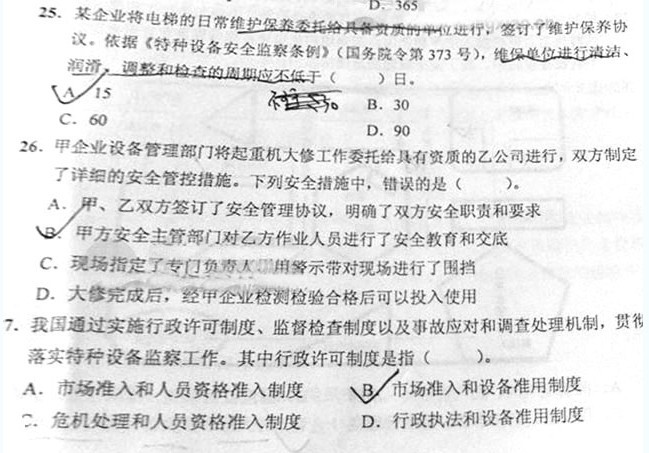 D．365
25．某企业将电梯的日常维护保养委托给具备资质的单位进行，签订了维护保养协
议。依据《特种设备安全监察条例》（国务院令第 373 号），维保单位进行清洁、
润滑、调整和检查的周期应不低于（　　）日。
A．15
B．30
C．60
D．90
26．甲企业设备管理部门将起重机大修工作委托给具有资质的乙公司进行，双方制定
了详细的安全管控措施。下列安全措施中，错误的是（　　）。
A．甲、乙双方签订了安全管理协议，明确了双方安全职责和要求
B．甲方安全主管部门对乙方作业人员进行了安全教育和交底
C．现场指定了专门负责人，用警示带对现场进行了围挡
D．大修完成后，经甲企业检测检验合格后可以投入使用
7．我国通过实施行政许可制度、监督检查制度以及事故应对和调查处理机制，贯彻
落实特种设备监察工作。其中行政许可制度是指（　　）。
A．市场准入和人员资格准入制度
B．市场准入和设备准用制度
C．危机处理和人员资格准入制度
D．行政执法和设备准用制度